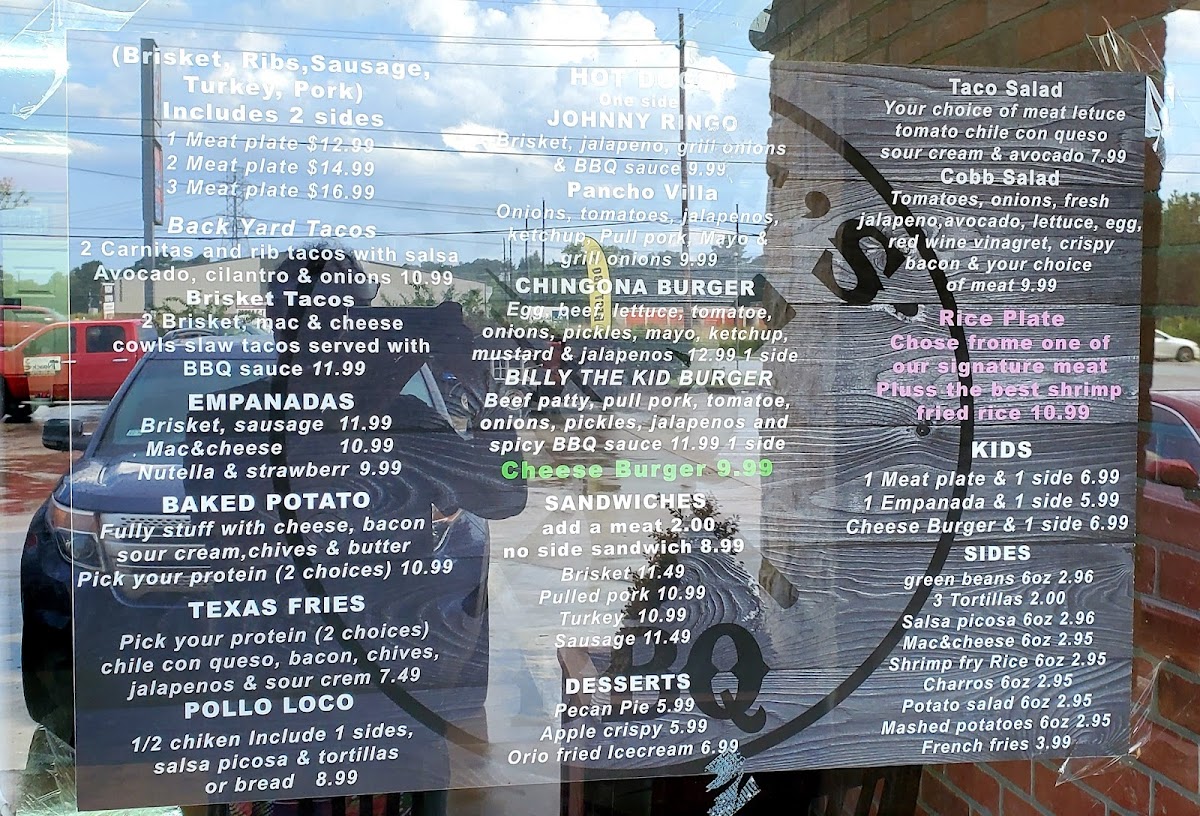 (Brisket, Ribs,Sausage,
Turkey, Pork)
Includes 2 sides
1 Meat plate $12.99
2 Meat plate $14.99
3 Meat plate $16.99
Back Yard Tacos
2 Carnitas and rib tacos with salsa
Avocado, cilantro & onions 10.99
Brisket Tacos
2 Brisket, mac & cheese
cowls slaw tacos served with
BBQ sauce 11.99
EMPANADAS
Brisket, sausage 11.99
Mac&cheese 10.99
Nutella & strawberr 9.99
BAKED POTATO
Fully stuff with cheese, bacon
sour cream,chives & butter
Pick your protein (2 choices) 10.99
TEXAS FRIES
Pick your protein (2 choices)
chile con queso, bacon, chives,
jalapenos & sour crem 7.49
POLLO LOCO
1/2 chiken Include 1 sides,
salsa picosa & tortillas
or bread 8.99
HOT
One side
JOHNNY RINGO
Brisket, jalapeno, grill onions
& BBQ sauce 9.99
Pancho Villa
Onions, tomatoes, jalapenos,
ketchup, Pull pork, Mayo &
grill onions 9.99
CHINGONA BURGER
Egg, beef, lettuce, tomatoe,
onions, pickles, mayo, ketchup,
mustard & jalapenos 12.99 1 side
BILLY THE KID BURGER
Beef patty, pull pork, tomatoe,
onions, pickles, jalapenos and
spicy BBQ sauce 11.99 1 side
Cheese Burger 9.99
SANDWICHES
add a meat 2.00
no side sandwich 8.99
Brisket 11.49
Pulled pork 10.99
Turkey 10.99
Sausage 11.49
DESSERTS
Pecan Pie 5.99
Apple crispy 5.99
Orio fried Icecream 6.99
Taco Salad
Your choice of meat letuce
tomato chile con queso
sour cream & avocado 7.99
Cobb Salad
Tomatoes, onions, fresh
jalapeno,avocado, lettuce, egg,
red wine vinagret, crispy
bacon & your choice
of meat 9.99
Rice Plate
Chose frome one of
our signature meat
Pluss the best shrimp
fried rice 10.99
KIDS
1 Meat plate & 1 side 6.99
1 Empanada & 1 side 5.99
Cheese Burger & 1 side 6.99
SIDES
green beans 6oz 2.96
3 Tortillas 2.00
Salsa picosa 6oz 2.96
Mac&cheese 6oz 2.95
Shrimp fry Rice 6oz 2.95
Charros 6oz 2.95
Potato salad 6oz 2.95
Mashed potatoes 6oz 2.95
French fries 3.99
'S
BBQ